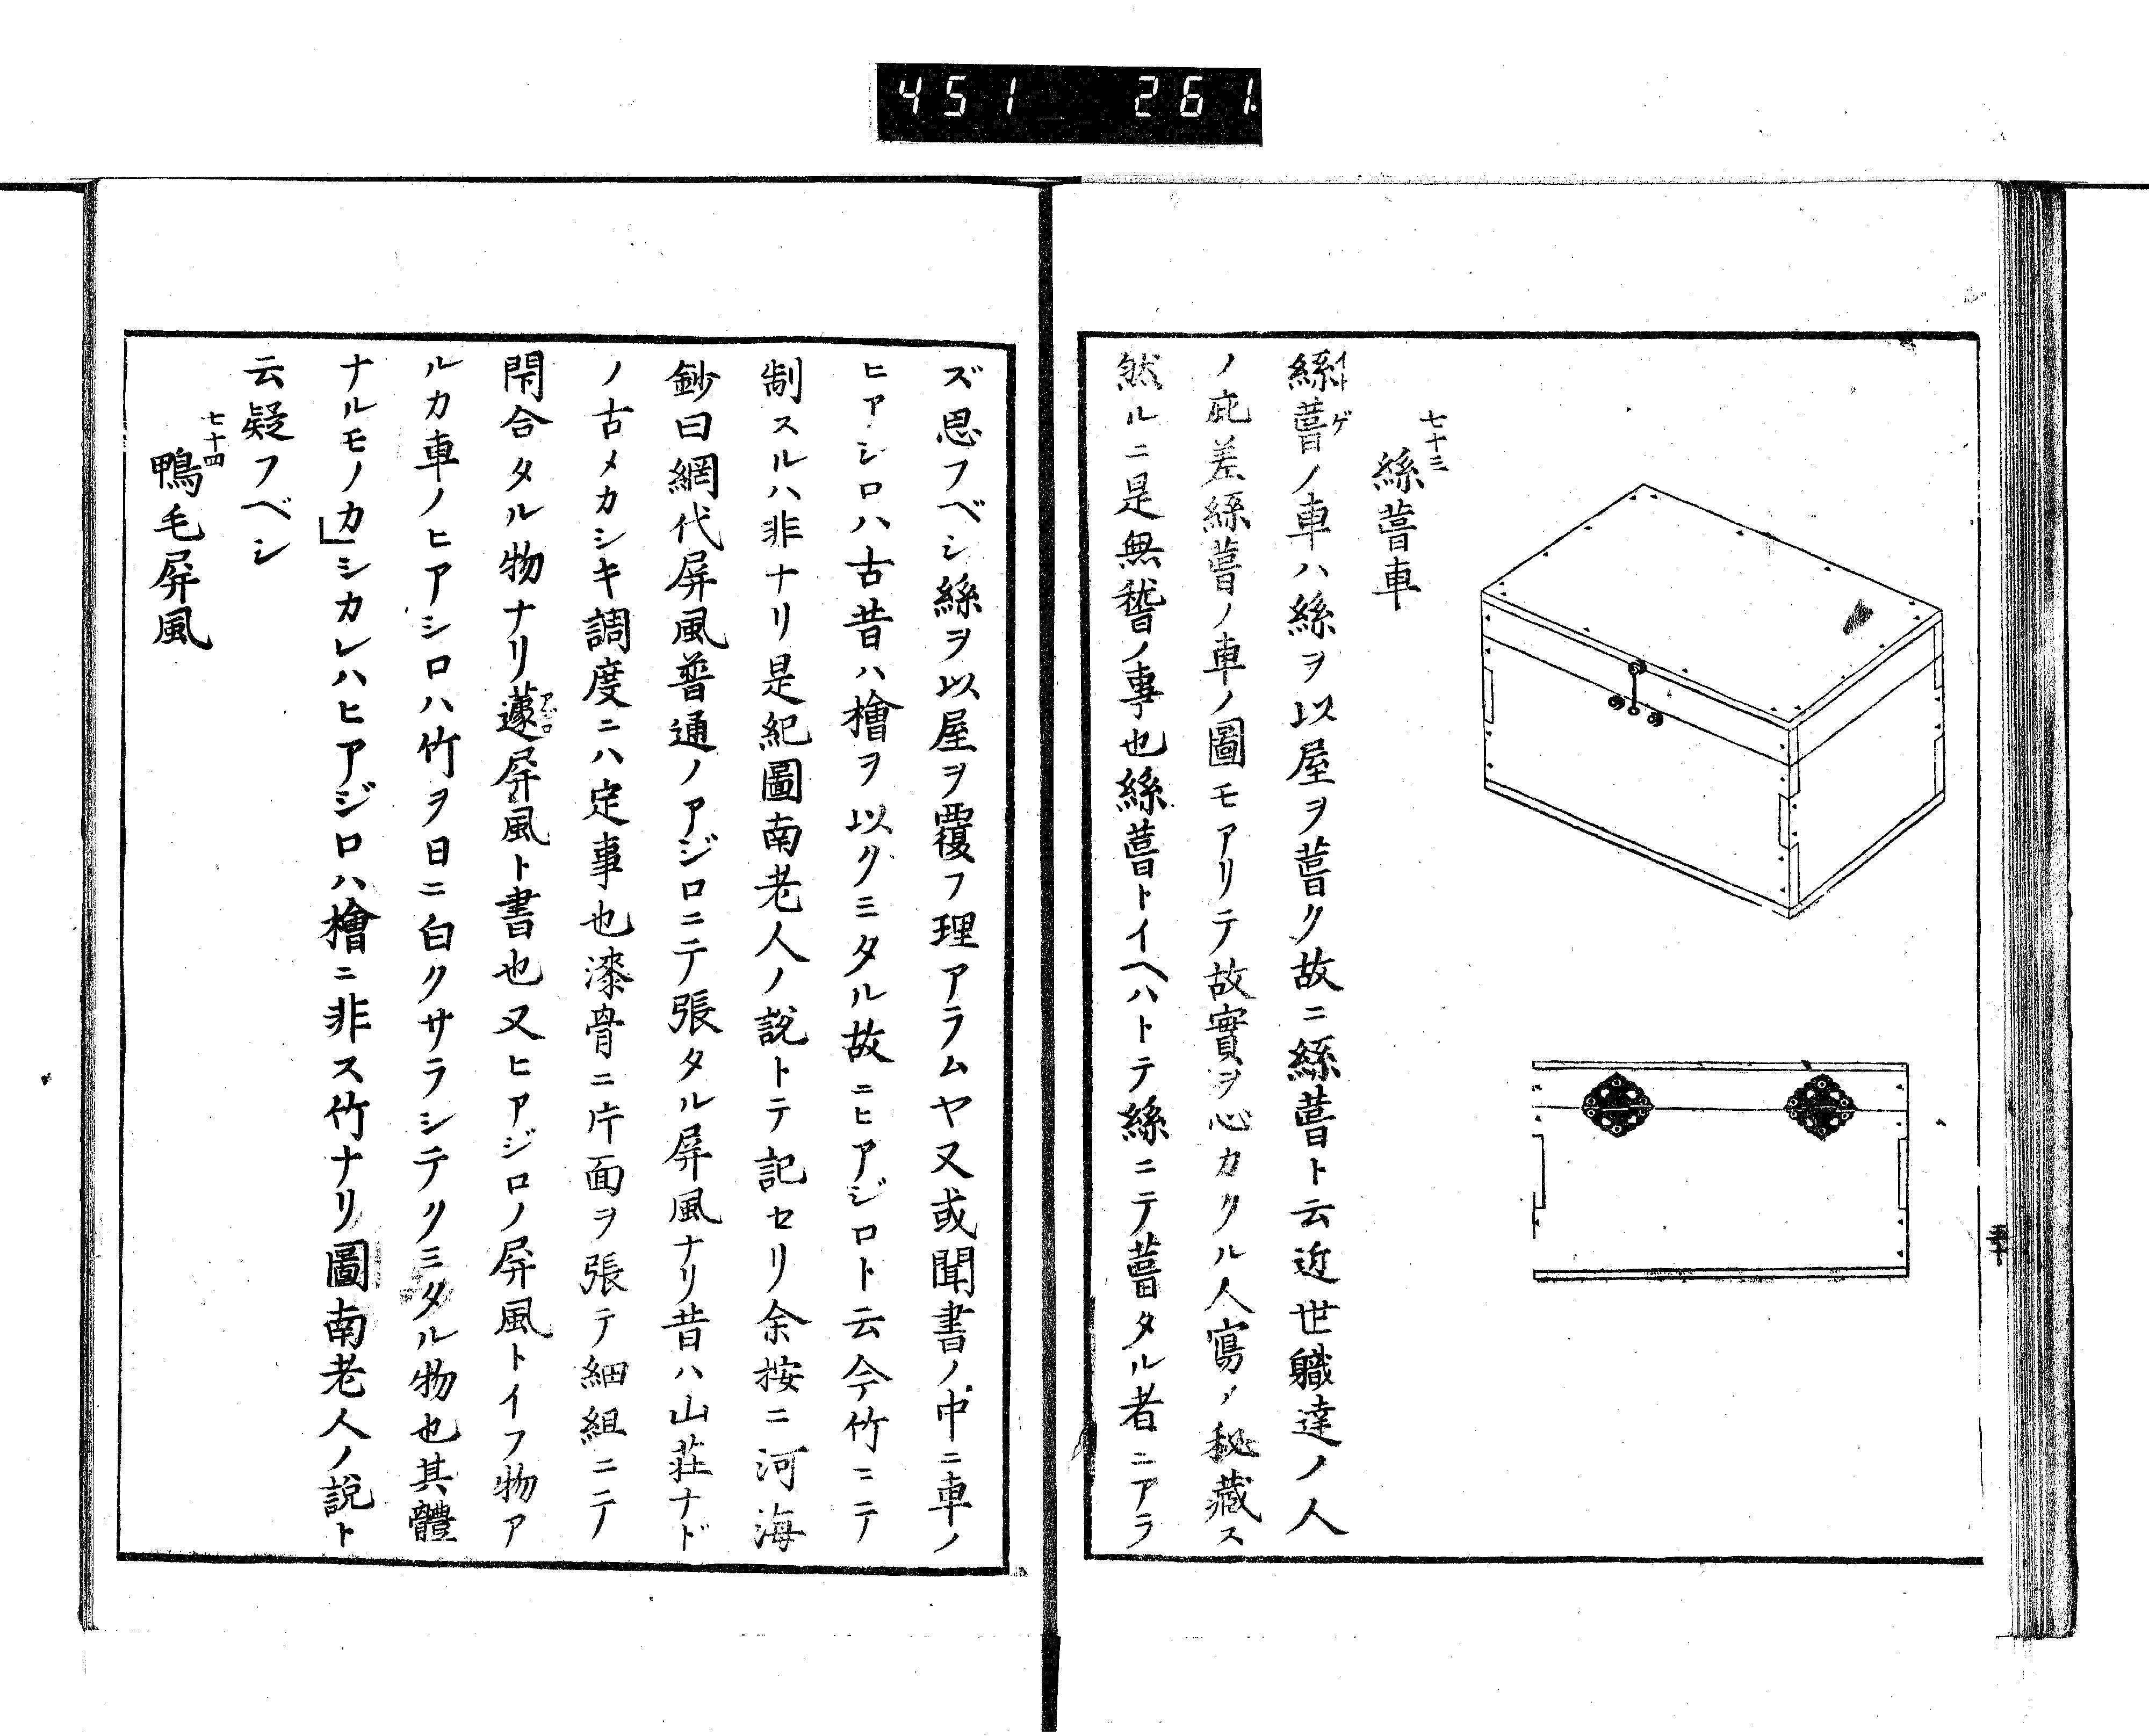 451 261
七十三
絲葺車
絲葺ノ車ハ絲ヲ以屋ヲ葺ク故ニ絲葺ト云近世職達ノ人
イトゲ
ノ庇差絲葺ノ車ノ圖モアリテ故實ヲ心カクル人寫メ秘藏ス
然ルニ是無稽ノ事也絲葺トイヘハトテ絲ニテ葺タル者ニアラ
ズ思フベシ絲ヲ以屋ヲ覆フ理アラムヤ又或聞書ノ中ニ車ノ
ヒアシロハ古昔ハ檜ヲ以クミタル故ニヒアジロト云今竹ニテ
制スルハ非ナリ是紀圖南老人ノ說トテ記セリ余按ニ河海
鈔曰網代屏風普通ノアジロニテ張タル屏風ナリ昔ハ山莊ナド
ノ古メカシキ調度ニハ定事也漆骨ニ片面ヲ張テ細組ニテ
閇合タル物ナリ籧屏風ト書也又ヒアジロノ屏風トイフ物ア
アジロ
ルカ車ノヒアシロハ竹ヲ日ニ白クサラシテクミタル物也其體
ナルモノカ」シカレハヒアジロハ檜ニ非ス竹ナリ圖南老人ノ說ト
云疑フベシ
七十四
鴨毛屏風